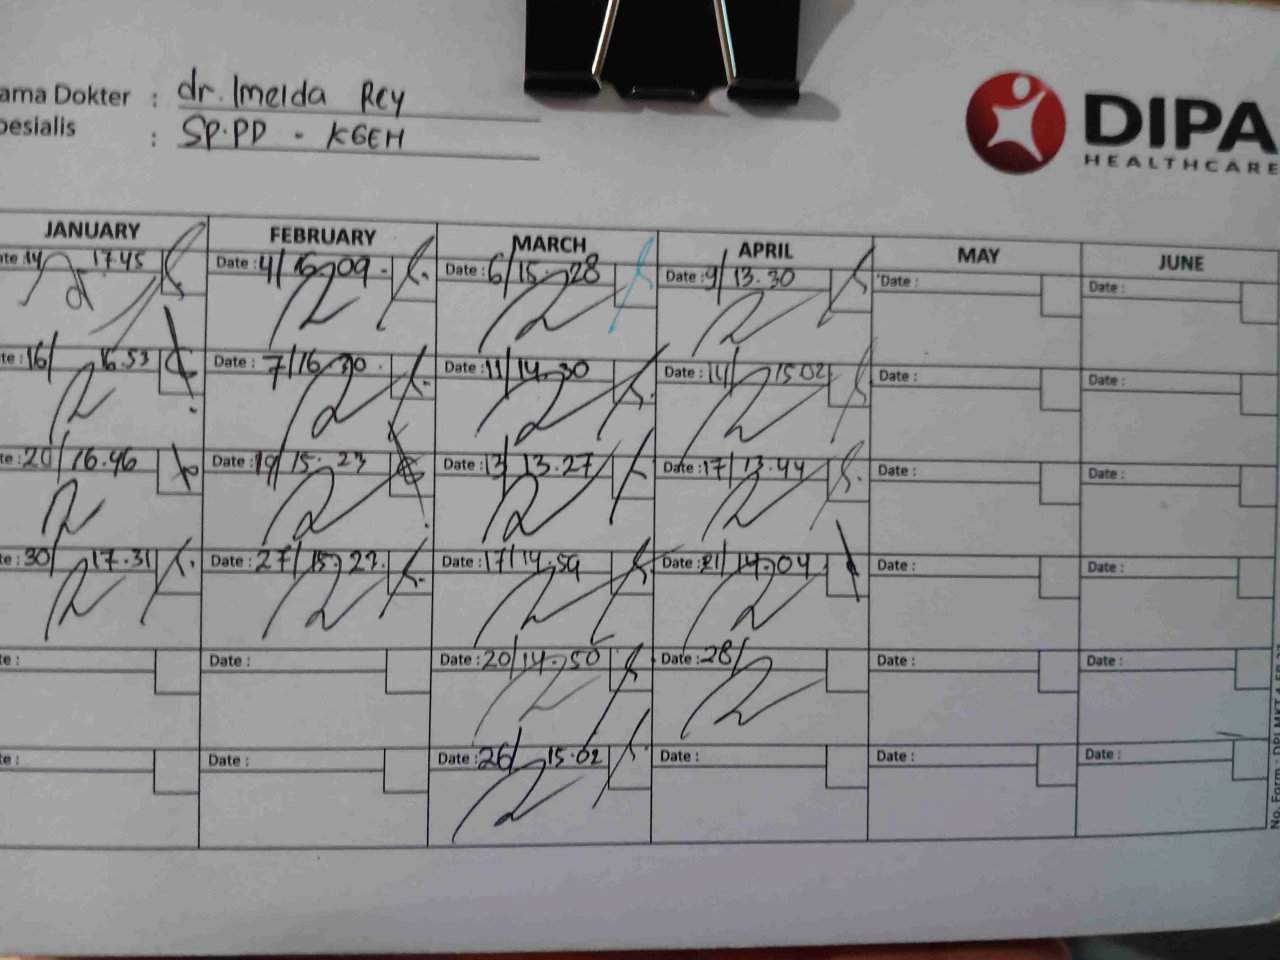 ama Dokter : dr. Imelda Rey
pesialis : SP.PD - KGEH
DIPA
HEALTHCARE
JANUARY FEBRUARY MARCH APRIL MAY JUNE
ate :14 17.45 Date :4/16.09 Date :6/15.28 Date :9/13.30 Date : Date :
te :16/ 16.53 Date : 7/16.30 Date :11/14.30 Date :14/ 15.02 Date : Date :
te :20/16.46 Date :19/15.23 Date :13/13.27 Date :17/13.44 Date : Date :
te :30/ 17.31 Date :27/15.27 Date :17/14.59 Date :21/14.04 Date : Date :
te : Date : Date :20/14.50 Date :28/ Date : Date :
te : Date : Date :26/ 15.02 Date : Date : Date :
No. Form :